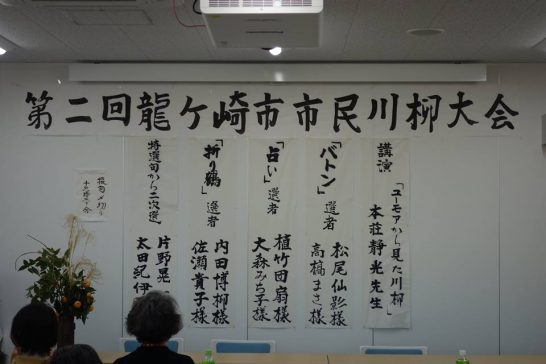 第二回龍ケ崎市市民川柳大会
講演
「ユーモアから見た川柳」
本荘静光先生
「バトン」選者
松尾仙影様
高橋まさ様
「占い」選者
植竹団扇様
大森みち子様
「折り鶴」選者
内田博柳様
佐瀬貴子様
特選句から二次選
片野晃一
太田紀伊
投句〆切り